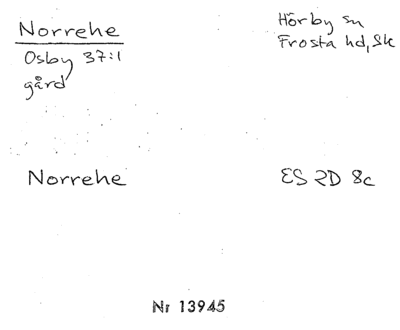 Norrehe
Osby 37:1
gård
Hörby sn
Frosta hd, Sk
Norrehe
ES 2D 8c
Nr 13945